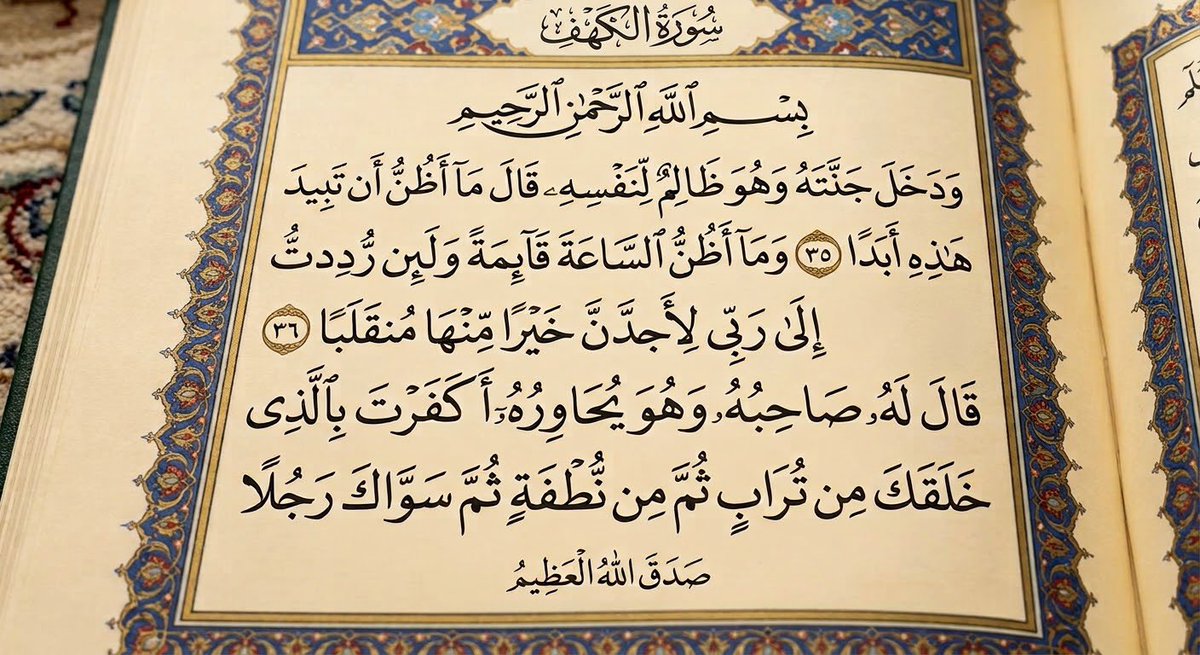 سُورَةُ الكَهْفِ
بِسْمِ ٱللَّهِ ٱلرَّحْمَٰنِ ٱلرَّحِيمِ
وَدَخَلَ جَنَّتَهُ وَهُوَ ظَالِمٌ لِّنَفْسِهِۦ قَالَ مَآ أَظُنُّ أَن تَبِيدَ
هَٰذِهِ أَبَدًا ٣٥ وَمَآ أَظُنُّ ٱلسَّاعَةَ قَآئِمَةً وَلَئِن رُّدِدتُّ
إِلَىٰ رَبِّى لِأَجدَّنَّ خَيْرًا مِّنْهَا مُنقَلَبًا ٣٦
قَالَ لَهُۥ صَاحِبُهُۥ وَهُوَ يُحَاوِرُهُۥٓ أَكَفَرْتَ بِٱلَّذِى
خَلَقَكَ مِن تُرَابٍ ثُمَّ مِن نُّطْفَةٍ ثُمَّ سَوَّاكَ رَجُلًا
صَدَقَ اللهُ الْعَظِيمُ